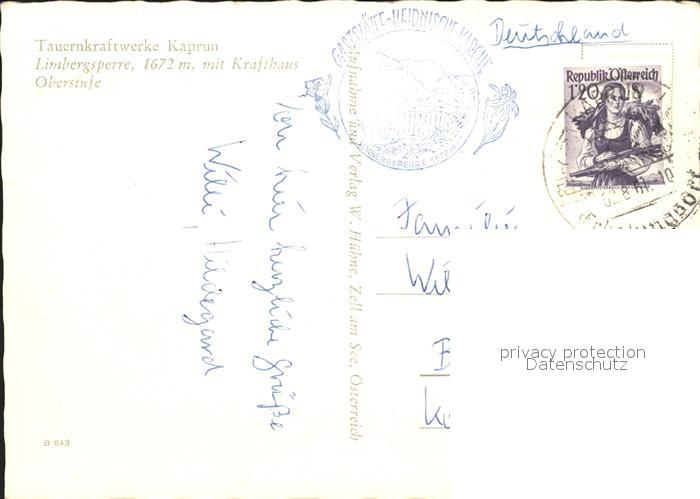 Tauernkraftwerke Kaprun
Limbergsperre, 1672 m, mit Krafthaus
Oberstufe
GASTSTÄTTE-HEIDNISCHE-KIRCHE
LIMBERGSPERRE
Deutschland
Republik Österreich
1'20 S
Aufnahme und Verlag W. Hübne, Zell am See, Österreich
Von hier herzliche Grüße
Willi, Hildegard
Familie
Wil
B
privacy protection
Datenschutz
B 643